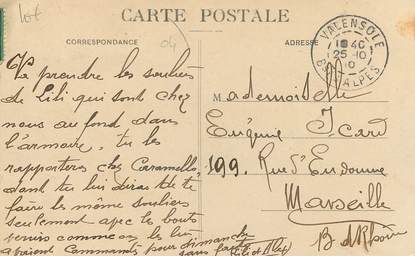 lot
04
CARTE POSTALE
CORRESPONDANCE
ADRESSE
VALENSOLE
25-10
Bses ALPES
prendre les souliers
de Lili qui sont chez
nous au fond dans
l'armoire, tu les
rapporteras chez Caramello,
dont tu lui diras de te
faire les même souliers
seulement avec les bouts
vernis comme on les lui
avaient commandé pour dimanche
sans faute
Mademoiselle
Eugénie Icard
199. Rue d'Endoume
Marseille
B d Rhône